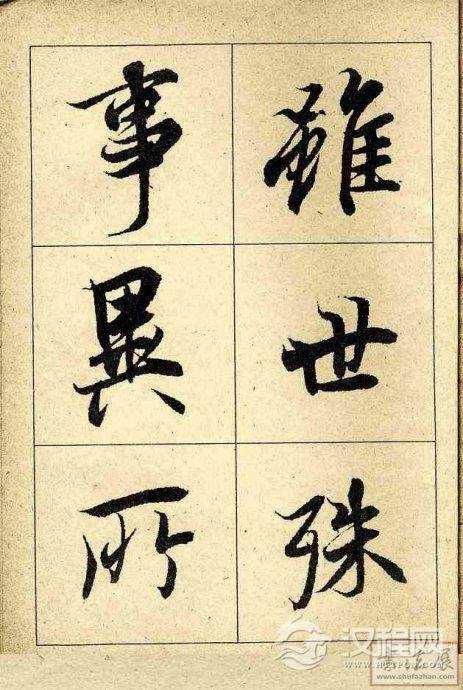 雖世殊
事異所
汉程网
HTTPCN.COM
www.shufazhan.com